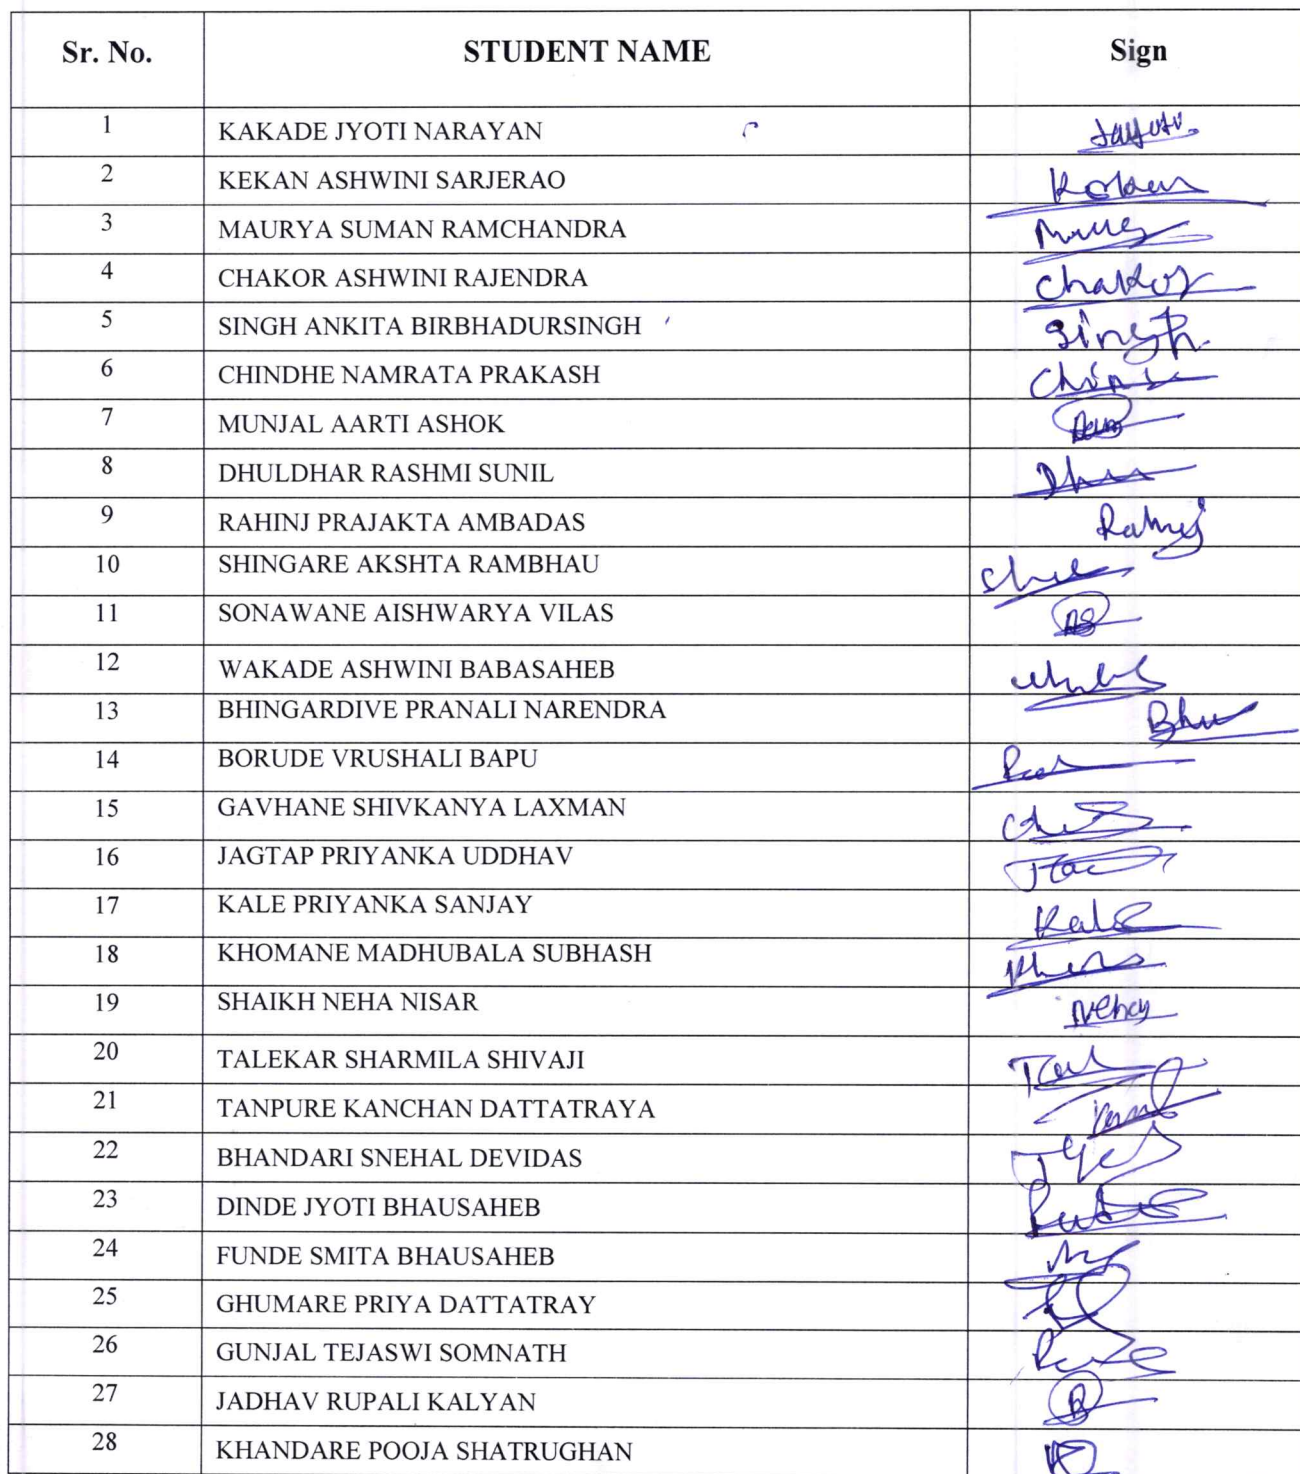 Sr. No. STUDENT NAME Sign
1 KAKADE JYOTI NARAYAN
2 KEKAN ASHWINI SARJERAO
3 MAURYA SUMAN RAMCHANDRA
4 CHAKOR ASHWINI RAJENDRA Chakor
5 SINGH ANKITA BIRBHADURSINGH Singh
6 CHINDHE NAMRATA PRAKASH
7 MUNJAL AARTI ASHOK
8 DHULDHAR RASHMI SUNIL
9 RAHINJ PRAJAKTA AMBADAS
10 SHINGARE AKSHTA RAMBHAU
11 SONAWANE AISHWARYA VILAS AS
12 WAKADE ASHWINI BABASAHEB
13 BHINGARDIVE PRANALI NARENDRA
14 BORUDE VRUSHALI BAPU
15 GAVHANE SHIVKANYA LAXMAN
16 JAGTAP PRIYANKA UDDHAV
17 KALE PRIYANKA SANJAY Kale
18 KHOMANE MADHUBALA SUBHASH
19 SHAIKH NEHA NISAR Neha
20 TALEKAR SHARMILA SHIVAJI
21 TANPURE KANCHAN DATTATRAYA
22 BHANDARI SNEHAL DEVIDAS
23 DINDE JYOTI BHAUSAHEB
24 FUNDE SMITA BHAUSAHEB
25 GHUMARE PRIYA DATTATRAY
26 GUNJAL TEJASWI SOMNATH
27 JADHAV RUPALI KALYAN
28 KHANDARE POOJA SHATRUGHAN